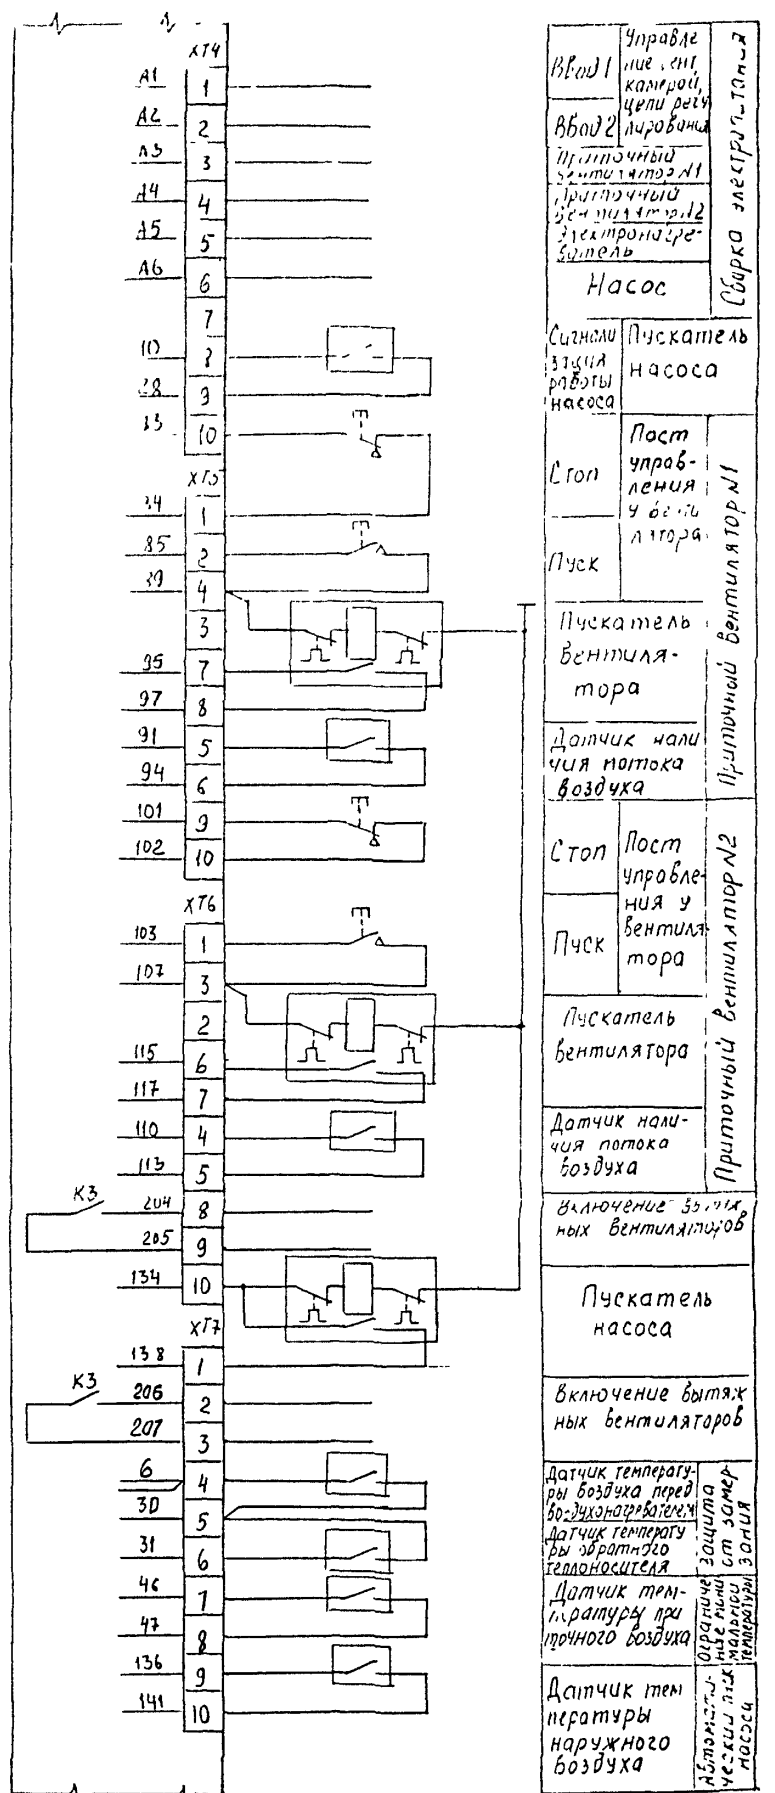 XT4
A1 1
A2 2
A3 3
A4 4
A5 5
A6 6
7
10 8
28 9
83 10
XT5
84 1
85 2
89 4
3
95 7
97 8
91 5
94 6
101 9
102 10
XT6
103 1
107 3
2
115 6
117 7
110 4
113 5
К3 204 8
205 9
134 10
XT7
138 1
К3 206 2
207 3
6 4
30 5
31 6
46 7
47 8
136 9
141 10
Ввод 1
Ввод 2
Управле
ние вент
камерой,
цепи регу
лирования
Приточный
вентилятор №1
Приточный
вентилятор №2
Электронагре-
ватель
Насос
Сборка электропитания
Сигнали
зация
работы
насоса
Пускатель
насоса
Стоп
Пуск
Пост
управ-
ления
у венти
лятора
Пускатель
вентиля-
тора
Датчик нали
чия потока
воздуха
Приточный вентилятор №1
Стоп
Пуск
Пост
управле-
ния у
вентиля-
тора
Пускатель
вентилятора
Датчик нали-
чия потока
воздуха
Приточный вентилятор №2
Включение вытяж
ных вентиляторов
Пускатель
насоса
Включение вытяж
ных вентиляторов
Датчик температу-
ры воздуха перед
воздухонагревателем
Датчик температу
ры обратного
теплоносителя
Защита
от замер
зания
Датчик тем-
пературы при
точного воздуха
Ограниче
ние мини
мальной
температуры
Датчик тем
пературы
наружного
воздуха
Автомати-
ческий пуск
насоса